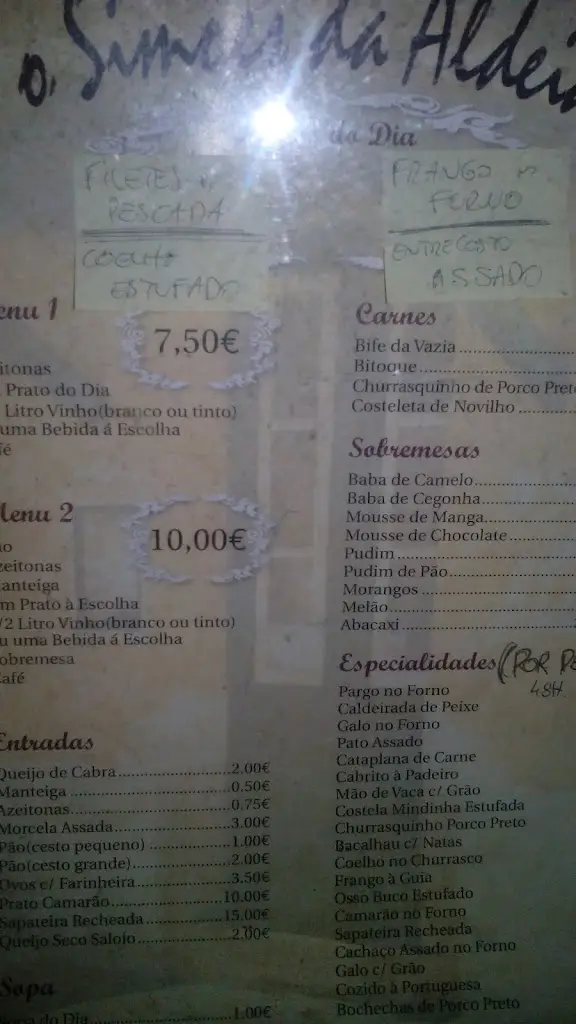 o, Simões da Aldeia
do Dia
FILETES
PESCADA
COELHO
ESTUFADO
FRANGO
FORNO
ENTRECOSTO
ASSADO
enu 1
7,50€
itonas
Prato do Dia
Litro Vinho(branco ou tinto)
uma Bebida á Escolha
fé
Menu 2
10,00€
ão
zeitonas
anteiga
m Prato à Escolha
/2 Litro Vinho(branco ou tinto)
u uma Bebida á Escolha
obremesa
afé
Entradas
Queijo de Cabra..............................2.00€
Manteiga..............................0.50€
Azeitonas..............................0.75€
Morcela Assada..............................3.00€
Pão(cesto pequeno)..............................1.00€
Pão(cesto grande)..............................2.00€
Ovos c/ Farinheira..............................3.50€
Prato Camarão..............................10.00€
Sapateira Recheada..............................15.00€
Queijo Seco Saloio..............................2.00€
Sopa
Sopa do Dia..............................1.00€
Carnes
Bife da Vazia..............................
Bitoque..............................
Churrasquinho de Porco Pret
Costeleta de Novilho..............................
Sobremesas
Baba de Camelo..............................
Baba de Cegonha..............................
Mousse de Manga..............................
Mousse de Chocolate..............................
Pudim..............................
Pudim de Pão..............................
Morangos..............................
Melão..............................
Abacaxi..............................
Especialidades (POR
48H
Pargo no Forno
Caldeirada de Peixe
Galo no Forno
Pato Assado
Cataplana de Carne
Cabrito à Padeiro
Mão de Vaca c/ Grão
Costela Mindinha Estufada
Churrasquinho Porco Preto
Bacalhau c/ Natas
Coelho no Churrasco
Frango à Guia
Osso Buco Estufado
Camarão no Forno
Sapateira Recheada
Cachaço Assado no Forno
Galo c/ Grão
Cozido à Portuguesa
Bochechas de Porco Preto